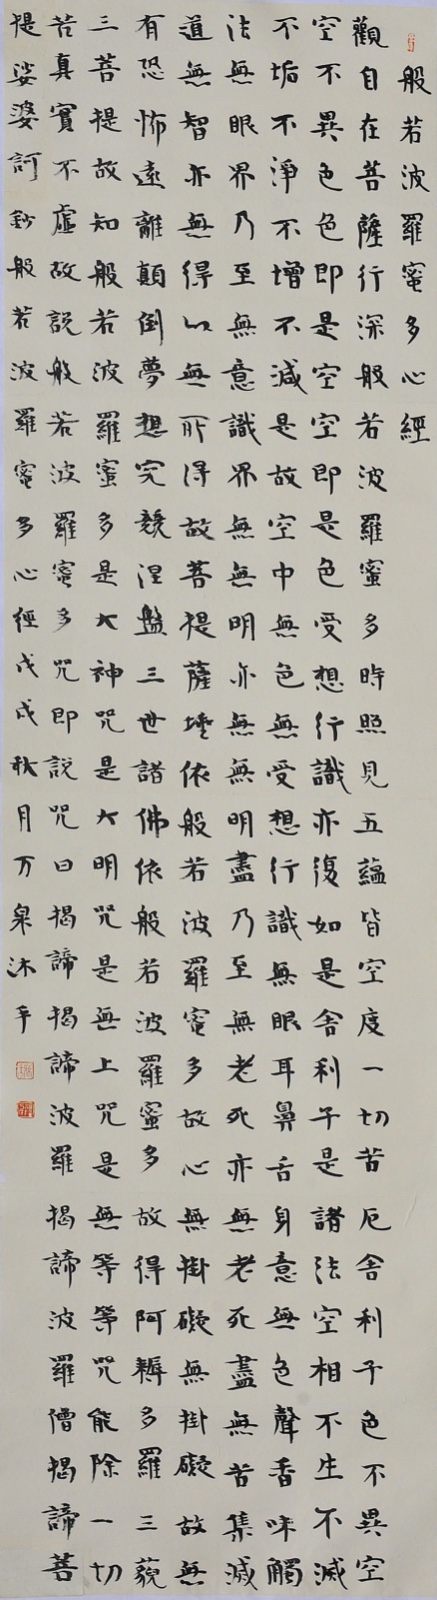 般若波羅蜜多心經
觀自在菩薩行深般若波羅蜜多時照見五蘊皆空度一切苦厄舍利子色不異空
空不異色色即是空空即是色受想行識亦復如是舍利子是諸法空相不生不滅
不垢不淨不增不減是故空中無色無受想行識無眼耳鼻舌身意無色聲香味觸
法無眼界乃至無意識界無無明亦無無明盡乃至無老死亦無老死盡無苦集滅
道無智亦無得以無所得故菩提薩埵依般若波羅蜜多故心無掛礙無掛礙故無
有恐怖遠離顛倒夢想究競涅盤三世諸佛依般若波羅蜜多故得阿耨多羅三藐
三菩提故知般若波羅蜜多是大神咒是大明咒是無上咒是無等等咒能除一切
苦真實不虛故說般若波羅蜜多咒即說咒曰揭諦揭諦波羅揭諦波羅僧揭諦菩
提娑婆訶 般若波羅蜜多心經戊戌秋月万泉沐手